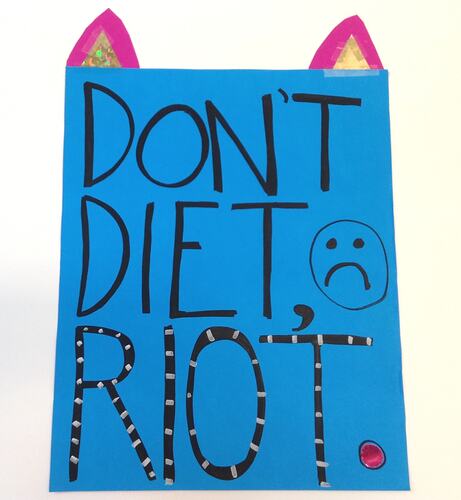 DON'T
DIET,
RIOT.